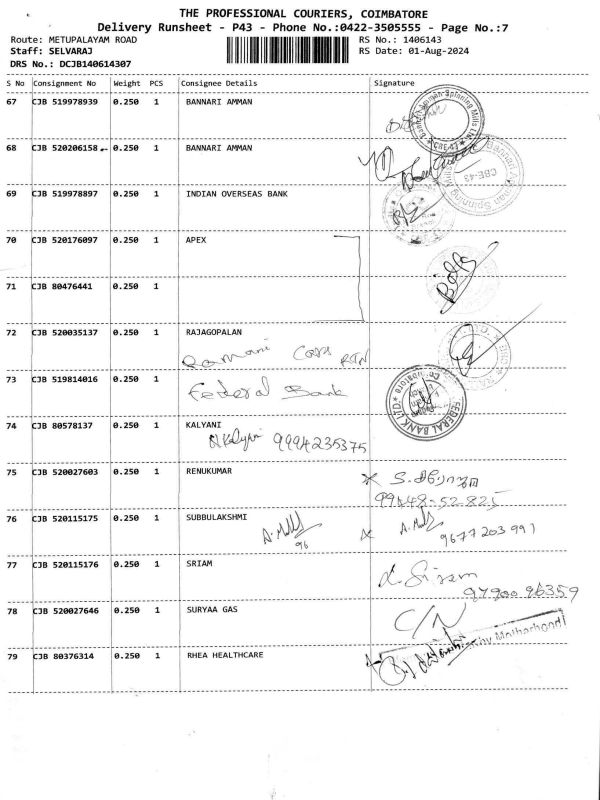 THE PROFESSIONAL COURIERS, COIMBATORE
Delivery Runsheet - P43 - Phone No.:0422-3505555 - Page No.:7
Route: METUPALAYAM ROAD RS No.: 1406143
Staff: SELVARAJ RS Date: 01-Aug-2024
DRS No.: DCJB140614307
S No Consignment No Weight PCS Consignee Details Signature
67 CJB 519978939 0.250 1 BANNARI AMMAN
Bannari Amman Spinning Mills Ltd
CBE-43
68 CJB 520206158 0.250 1 BANNARI AMMAN
Bannari Amman Spinning
CBE-43
69 CJB 519978897 0.250 1 INDIAN OVERSEAS BANK
70 CJB 520176097 0.250 1 APEX
71 CJB 80476441 0.250 1
72 CJB 520035137 0.250 1 RAJAGOPALAN
73 CJB 519814016 0.250 1 Federal Bank
FEDERAL BANK LTD
74 CJB 80578137 0.250 1 KALYANI
9994235375
75 CJB 520027603 0.250 1 RENUKUMAR
99448-52825
76 CJB 520115175 0.250 1 SUBBULAKSHMI
96
9677203991
77 CJB 520115176 0.250 1 SRIAM
97900 96359
78 CJB 520027646 0.250 1 SURYAA GAS
C/N
79 CJB 80376314 0.250 1 RHEA HEALTHCARE
by Motherhood